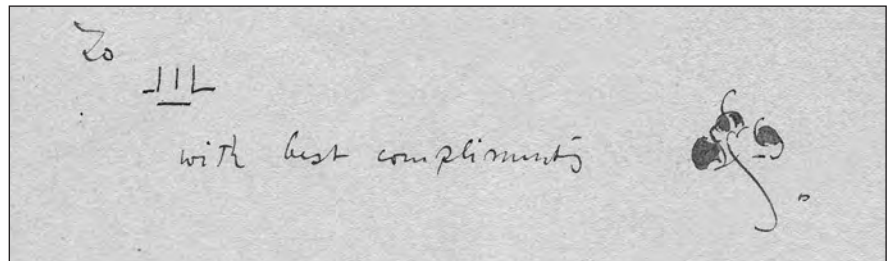 To
JIL
with best compliments